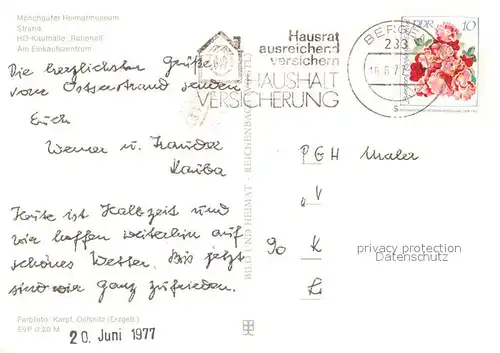 Mönchguter Heimatmuseum
Strand
HO-Kaufhalle "Rationell"
Am Einkaufszentrum
Die herzlichsten Grüße
vom Ostseestrand senden
Euch
Werner u.
Heute ist Halbzeit und
wir hoffen weiterhin auf
schönes Wetter. Bis jetzt
sind wir ganz zufrieden.
Farbfoto: Karpf, Oelsnitz (Erzgeb.)
EVP 0,20 M
20. Juni 1977
BILD UND HEIMAT · REICHENBACH
Hausrat
ausreichend
versichern
HAUSHALT
VERSICHERUNG
BERGEN
233
16.6.77
s
DDR 10
PGH Maler
"V
90 K
L
privacy protection
Datenschutz